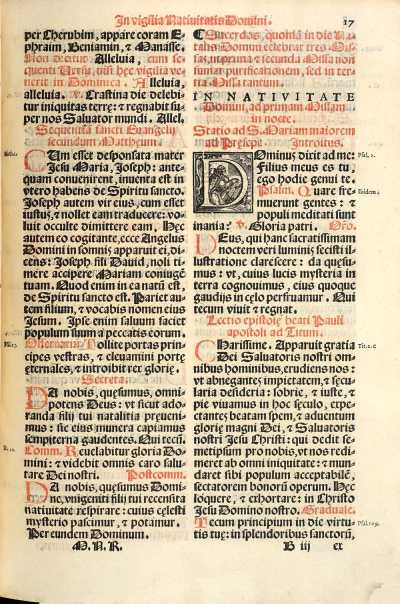 In vigilia Nativitatis Domini.
17
per Cherubim, appare coram E-
phraim, Beniamin, & Manasse.
Non dicitur Alleluia, cum se-
quenti Versu, nisi hec vigilia ve-
nerit in Dominica. Alleluia,
alleluia. ℣. Crastina die delebi-
tur iniquitas terre: & regnabit su-
per nos Saluator mundi. Allel.
Sequentia sancti Euangelij
secundum Mattheum.
CUm esset desponsata mater
Jesu Maria, Joseph: ante-
quam conuenirent, inuenta est in
vtero habens de Spiritu sancto.
Joseph autem vir eius, cum esset
iustus, & nollet eam traducere: vo-
luit occulte dimittere eam. Hec
autem eo cogitante, ecce Angelus
Domini in somnis apparuit ei, di-
cens: Joseph fili Dauid, noli ti-
mere accipere Mariam coniugē
tuam. Quod enim in ea natū est,
de Spiritu sancto est. Pariet au-
tem filium, & vocabis nomen eius
Jesum. Ipse enim saluum faciet
populum suum a peccatis eorum.
Offertorium. Tollite portas prin-
cipes vestras, & eleuamini porte
eternales, & introibit rex glorie.
Secreta.
DA nobis, quesumus, omni-
potens Deus: vt sicut ado-
randa filij tui natalitia preueni-
mus: sic eius munera capiamus
sempiterna gaudentes. Qui tecū.
Comm. Reuelabitur gloria Do-
mini: & videbit omnis caro salu-
tare Dei nostri. Postcomm.
DA nobis, quesumus Domi-
ne, vnigeniti filij tui recensita
natiuitate respirare: cuius celesti
mysterio pascimur, & potamur.
Per eundem Dominum.
M. N. R.
SAcerdos, quoniā in die Na-
talis Domini celebrat tres Mis-
sas, in prima & secunda Missa non
sumat purificationem, sed in ter-
tia Missa tantum.
IN NATIVITATE
Domini, ad primam Missam
in nocte.
Statio ad S. Mariam maiorem
ad Presepe. Introitus.
DOminus dixit ad me:
Filius meus es tu,
ego hodie genui te.
Psalm. Quare fre-
muerunt gentes: &
populi meditati sunt
inania? ℣. Gloria patri. Orō.
DEus, qui hanc sacratissimam
noctem veri luminis fecisti il-
lustratione clarescere: da quesu-
mus: vt, cuius lucis mysteria in
terra cognouimus, eius quoque
gaudijs in celo perfruamur. Qui
tecum viuit & regnat.
Lectio epistole beati Pauli
apostoli ad Titum.
CHarissime. Apparuit gratia
Dei Saluatoris nostri om-
nibus hominibus, erudiens nos: vt
vt abnegantes impietatem, & secu-
laria desideria: sobrie, & iuste, &
pie viuamus in hoc seculo, expe-
ctantes beatam spem, & aduentum
glorie magni Dei, & Saluatoris
nostri Jesu Christi: qui dedit se-
metipsum pro nobis, vt nos redi-
meret ab omni iniquitate: & mun-
daret sibi populum acceptabilē,
sectatorem bonorū operum. Hec
loquere, & exhortare: in Christo
Jesu Domino nostro. Graduale.
Tecum principium in die virtu-
tis tue: in splendoribus sanctorū,
B iij ex